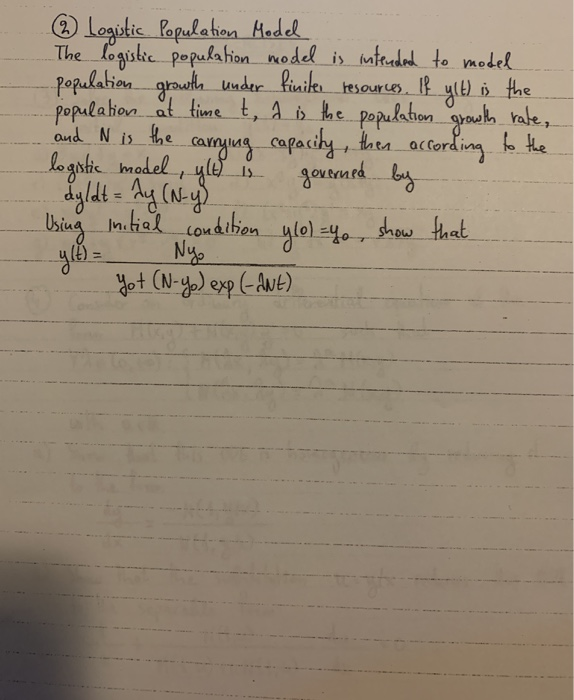 ② Logistic Population Model
The logistic population model is intended to model
population growth under finite resources. If y(t) is the
population at time t, λ is the population growth rate,
and N is the carrying capacity, then according to the
logistic model, y(t) is governed by
dy/dt = λy (N-y)
Using initial condition y(0) = y₀, show that
y(t) = Ny₀
y₀+ (N-y₀) exp (-λNt)